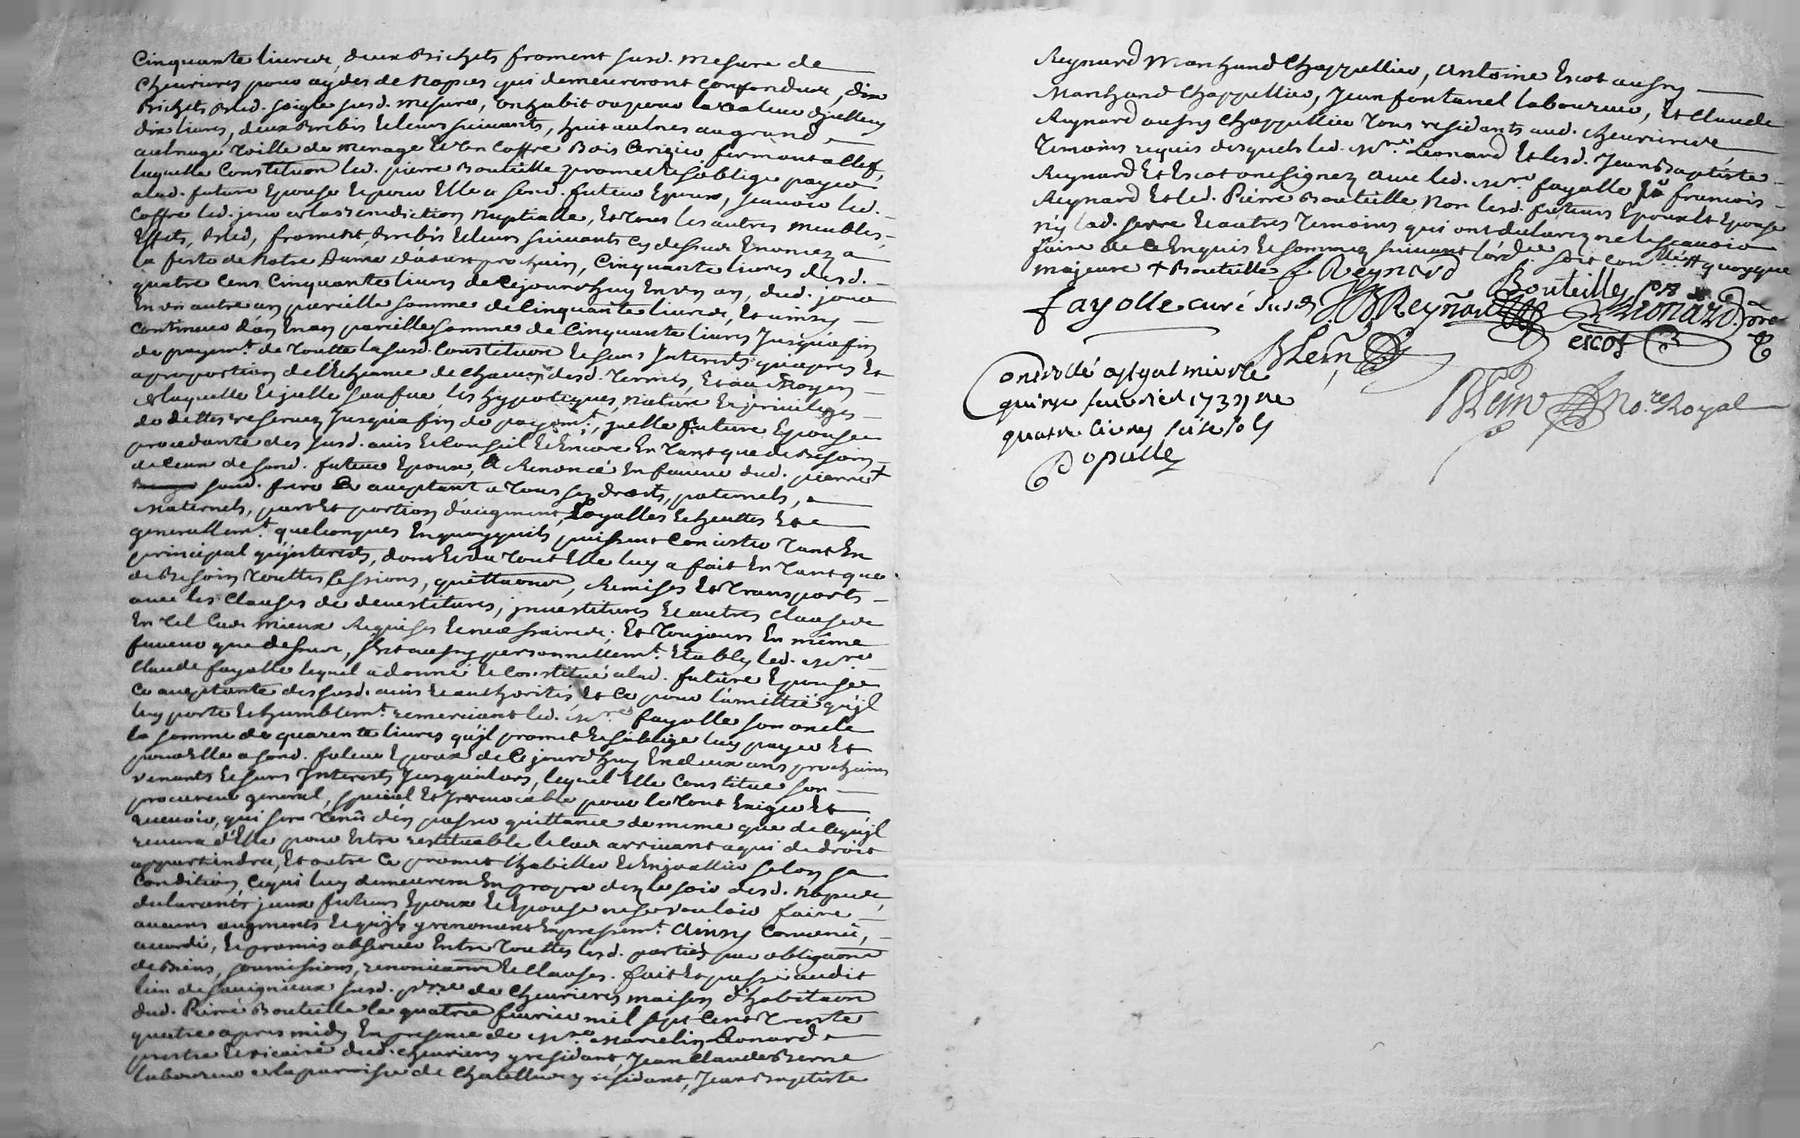 Cinquante livres, deux Bichets froment susd. mesure de
Chevrieres pour aydes de Nopces qui demeureront confondues, dix
Bichets bled soigle susd. mesure, un habit ou pour la valleur d'jcelluy
dix livres, deux Brebis et leurs suivants, huit aulnes au grand
aulnage Toille de menage et un Coffre Bois Cerizier fermant a clef,
laquelle Constitution led. pierre Bouteille promet et s'oblige payer
a lad. future Epouse et pour Elle a sond. futeur Epoux, scavoir led.
Coffre led. jour de la Benediction Nuptialle, Et Tous les autres meubles,
Effets, Bled, froment, Brebis et leurs suivants cy dessus Enoncez a
la feste de Notre Dame d'aoust prochain, Cinquante livres desd.
quatre Cens Cinquante livres de Cejourd'huy En un an, dud. jour
En un autre an pareille somme de Cinquante livres, Et ainsy
Continuer d'an En an pareille somme de Cinquante livres Jusqu'a fin
de payemt. de Toutte la susd. Constitution et sans Interests qu'apres Et
a proportion de l'Echeance de chacun desd. Termes, Et au moyen
de laquelle Et jcelle sauf les hypoteques, nature Et privileges
de dettes reservez Jusqu'a fin de payemt., jcelle future Epouse
procedante des susd. avis Et Conseil Et Encore En Tant que de Besoin
de Ceux de sond. futeur Epoux, a Renoncé En faveur dud. pierre +
sond. frere Ce acceptant a Tous ses droits, paternels,
Maternels, part Et portion d'augment, Loyalles Echeuttes Et
generallemt. quelconques En quoy quils puissent Consister Tant En
principal qu'jnterests, dont Et du Tout Elle luy a fait En Tant que
de Besoin Touttes Cessions, quittances, Remises Et Transports
avec les Clauses de devestitures, jnvestitures Et autres clauses
En Tel Cas mieux Requises Et necessaires; Et Toujours En même
faveur que dessus, s'est aussy personnellemt. Etably led. Mre
Claude fayolle lequel a donné Et Constitué a lad. future Epouse
Ce acceptante des susd. avis Et authorités Et Ce pour l'amittié qu'jl
luy porte Et humblemt. remerciant led. Mre fayolle son oncle
la somme de quarente livres qu'jl promet Et s'oblige luy payer Et
pour Elle a sond. futeur Epoux de Cejourd'huy En deux ans prochains
venants Et sans Interests Jusqu'alors, lequel Elle Constitue son
procureur general, special Et Irrevocable pour le Tout Exiger Et
recevoir, qui sera Tenû d'en passer quittance de meme que de Cequ'jl
recevra d'Elle pour Estre restituable le Cas arrivant a qui de droit
appartiendra, Et outre Ce promet l'habiller Et Enjoaillier selon sa
Condition, Ce qui luy demeurera En propre dez le soir desd. Nopces,
declarants jceux futeurs Epoux Et Epouse ne se vouloir faire
aucuns augments Et qu'jls y renoncent Expressemt. Ainsy Convenû,
accordé, Et promis observer Entre Touttes lesd. parties par obligaons
de Biens, soumissions, renonciaons Et Clauses. fait Et passé audit
lieu de Savignieux susd. psse de Chevrieres maison d'habitaon
dud. Pierre Bouteille le quatrie fevrier mil sept Cens Trente
quatre apres midy En presence de Mre Marcelin Leonard
prestre Et vicaire dud. chevrieres y residant, Jean Claude Berne
laboureur de la paroisse de Chatelluz y residant, Jean Baptiste
Reynard Marchand Chappellier, Antoine Escot aussy
Marchand Chappellier, Jean fontanel laboureur, Et Claude
Reynard aussy Chappellier Tous residants aud. chevrieres
Temoins requis desquels led. Mre Leonard Et lesd. Jean Baptiste
Reynard Et Escot ont signez avec led. Mre fayolle Et francois
Reynard Et led. Pierre Bouteille, Non lesd. futeurs Epoux Et Epouse
n'y lad. Serre Et autres Temoins qui ont declarez ne le scavoir
faire de Ce Enquis Et sommez suivant l'orde. soit Conllé. quoyque
majeure + Bouteille f Reynard Bouteille
fayolle curé susd J B Reynard Leonard pre
escot
Blein
Controllé a st galmier le
quinze fevrier 1734 Re
quatre livres seize sols
Populle
Blein No.re Royal